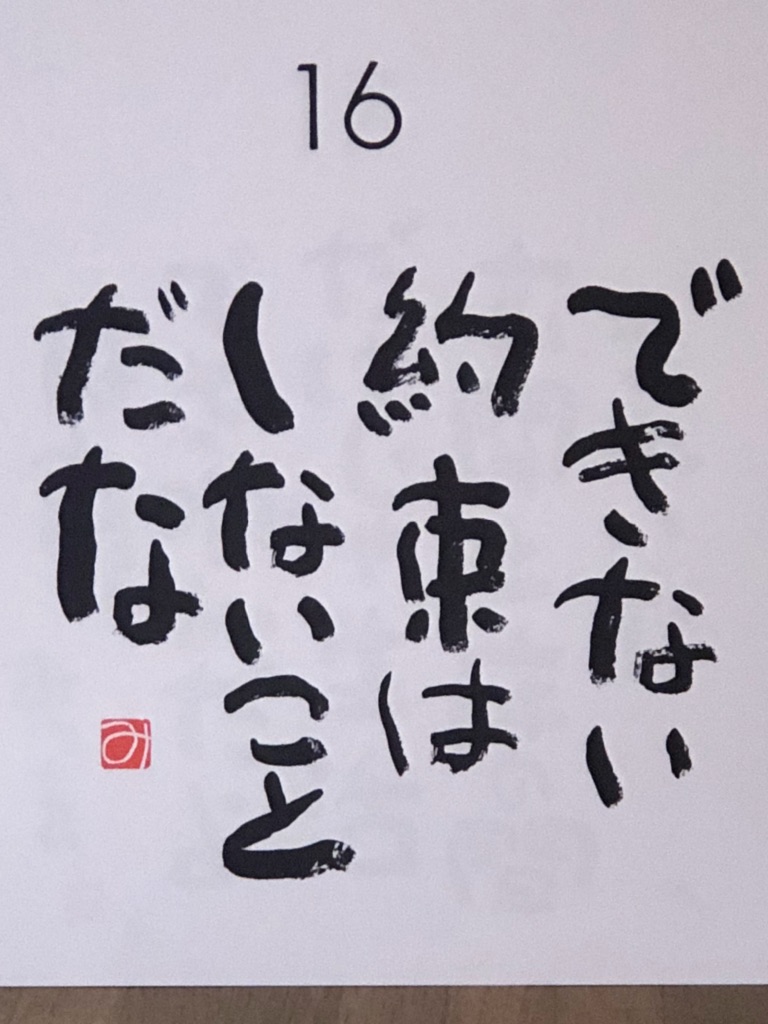 16
できない
約束は
しないこと
だな
み